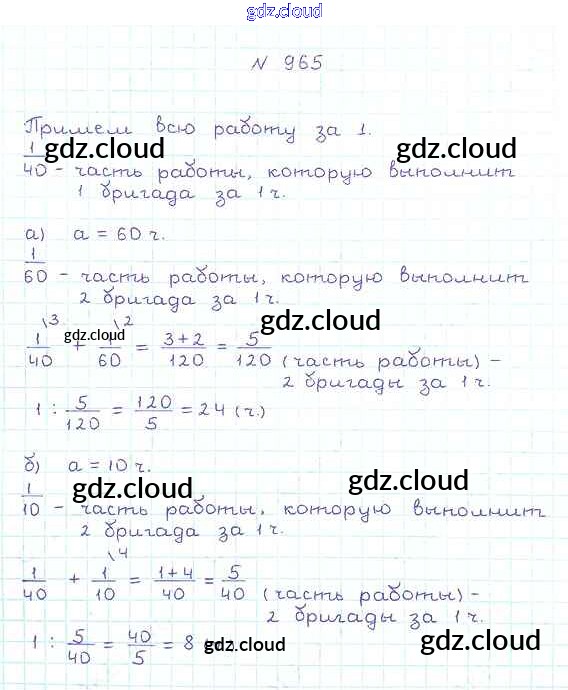 gdz.cloud
N 965
Примем всю работу за 1.
gdz.cloud gdz.cloud
1/40 - часть работы, которую выполнит
1 бригада за 1 ч.
а) a = 60 ч.
gdz.cloud
1/60 - часть работы, которую выполнит
2 бригада за 1 ч.
gdz.cloud
gdz.cloud
1\3/40 + 1\2/60 = 3+2/120 = 5/120 (часть работы) -
2 бригады за 1 ч.
1 : 5/120 = 120/5 = 24 (ч.)
б) a = 10 ч.
gdz.cloud gdz.cloud
1/10 - часть работы, которую выполнит
2 бригада за 1 ч.
1/40 + 1\4/10 = 1+4/40 = 5/40 (часть работы) -
2 бригады за 1 ч.
1 : 5/40 = 40/5 = 8
gdz.cloud gdz.cloud